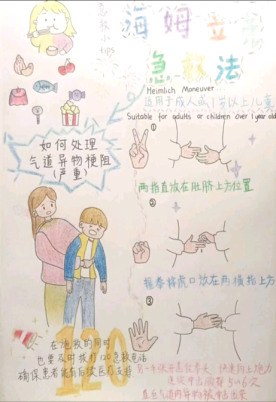 急救小课
海姆立
急救法
Heimlich Maneuver
适用于成人或1岁以上儿童
Suitable for adults or children over 1 year old
如何处理
气道异物梗阻
(严重)
①
两指直放在肚脐上方位置
②
握拳将虎口放在两横指上方
③
另一手
快速向上施力
连续冲击
5~6次
直至气道内异物被冲击出来
120
在施救的同时
也要及时拨打120急救电话
确保患者能有后续医疗支持